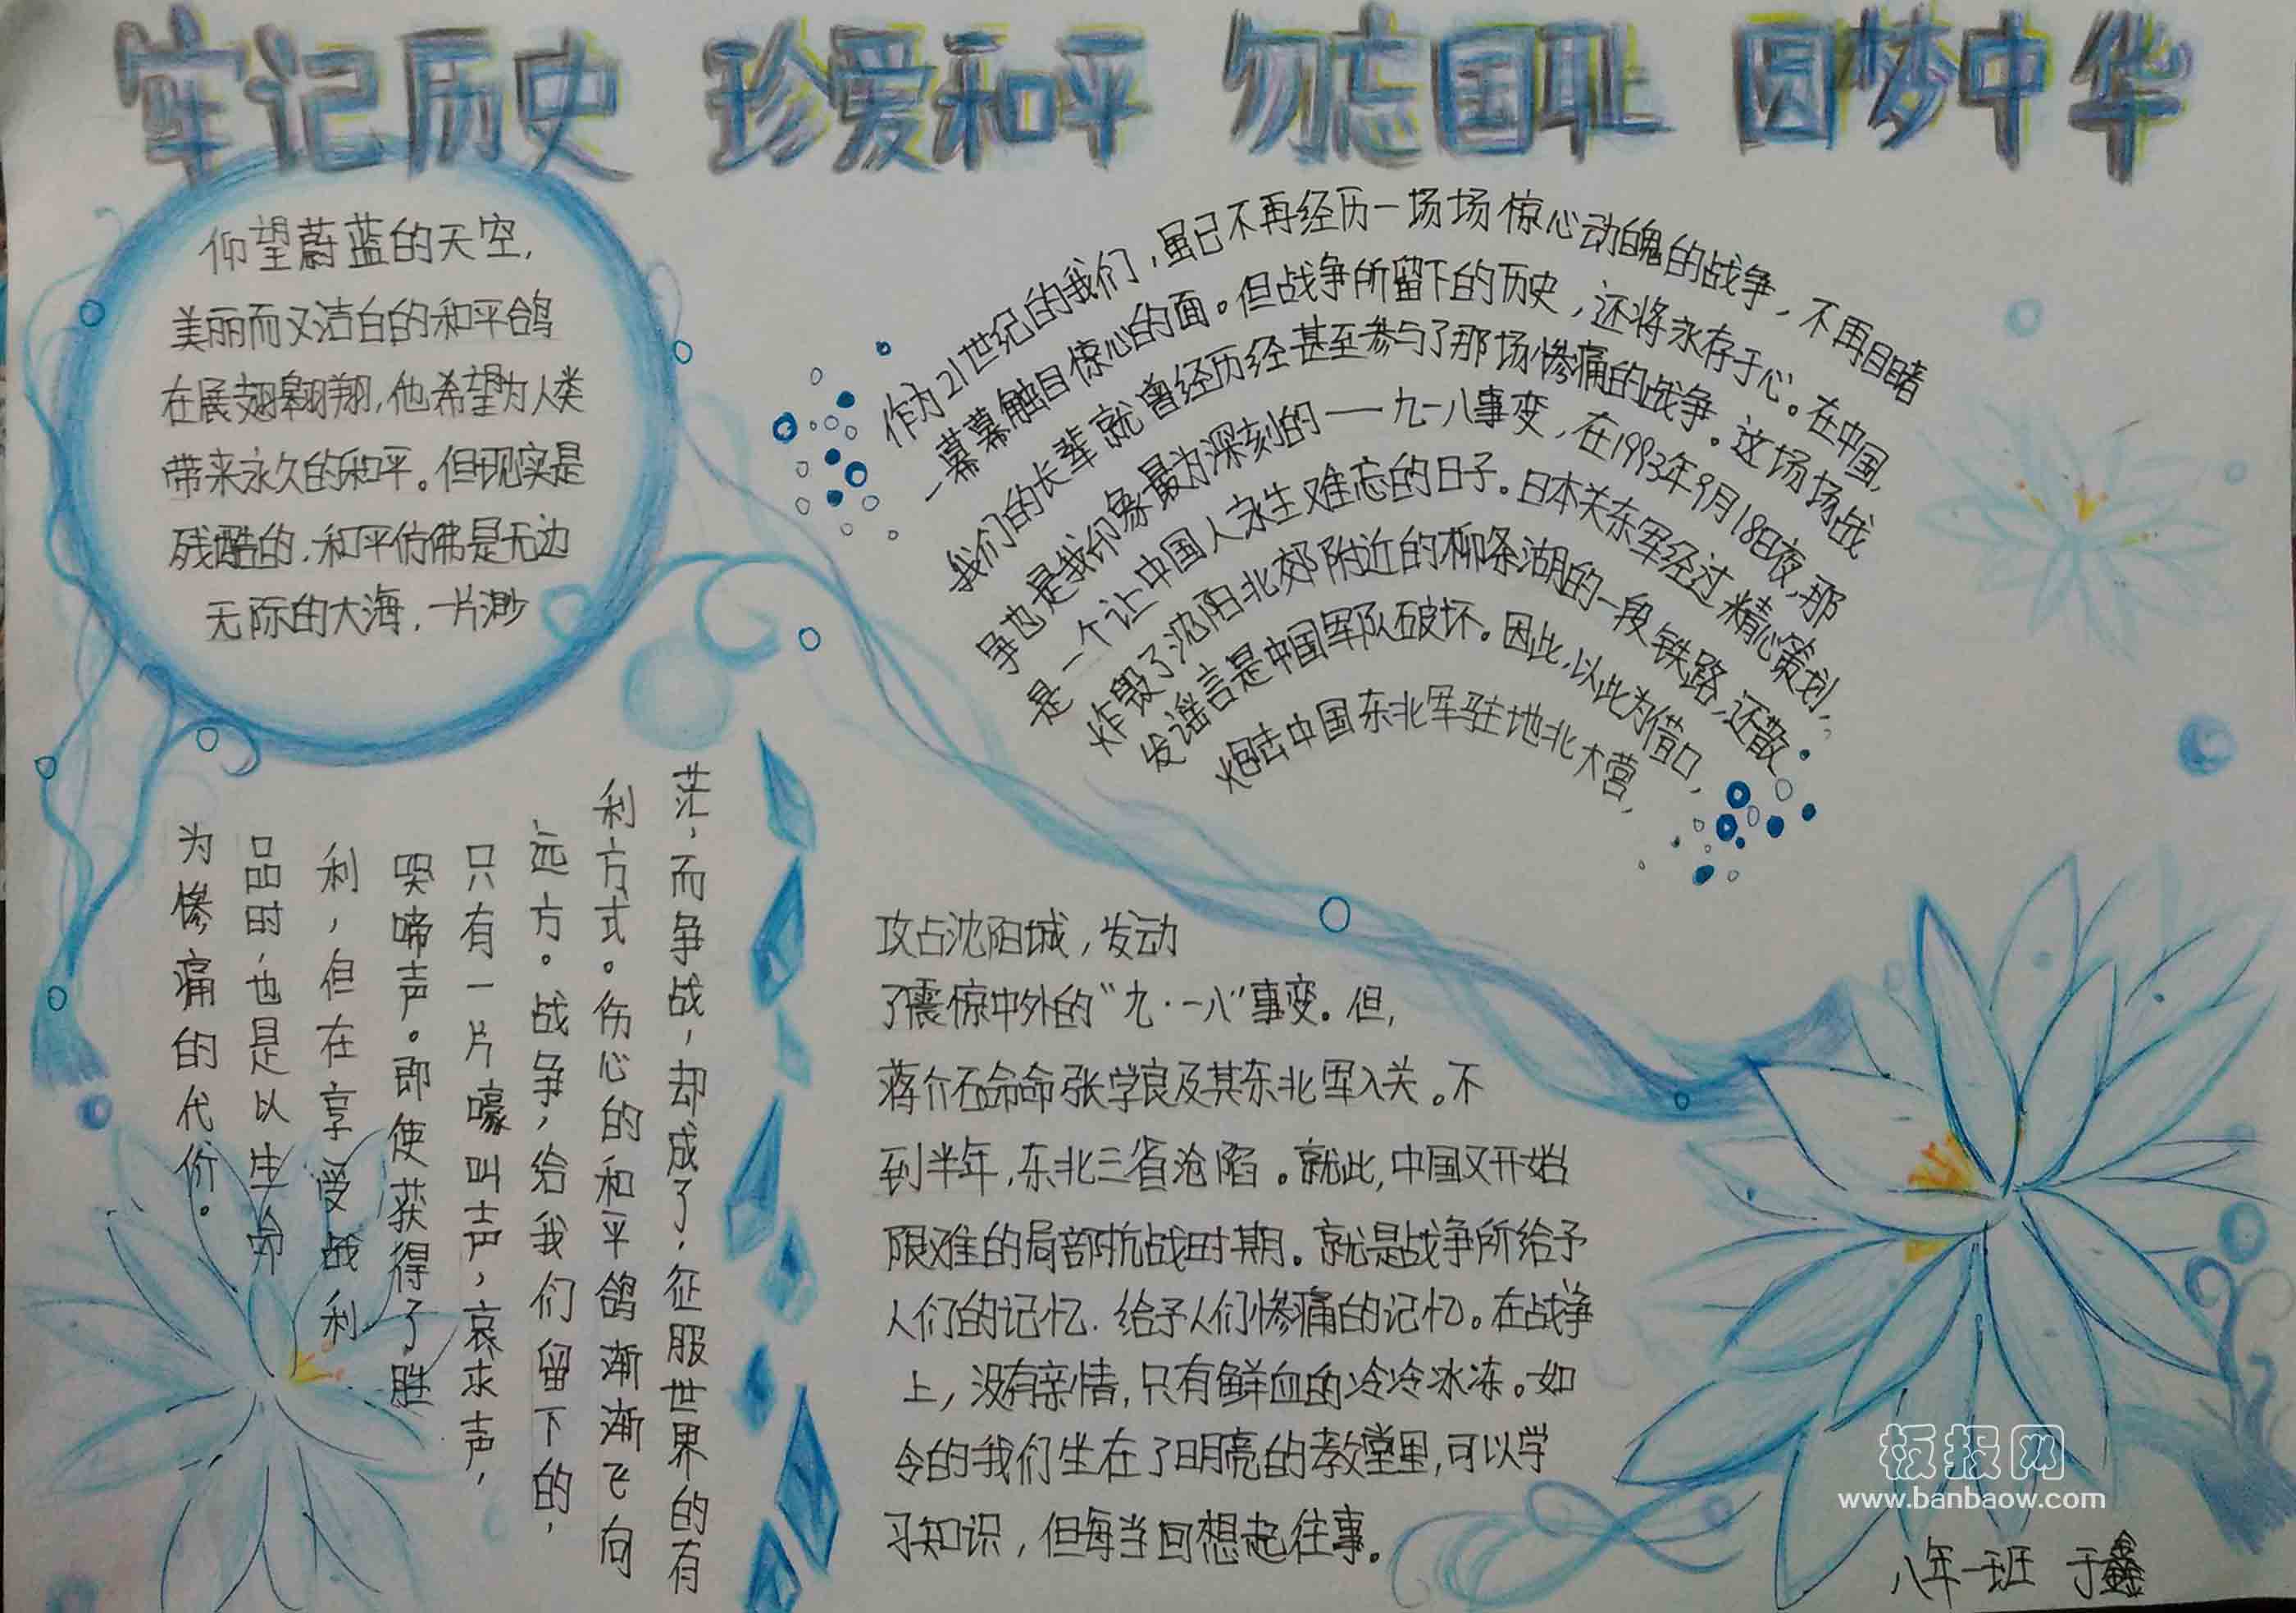 牢记历史 珍爱和平 勿忘国耻 圆梦中华
仰望蔚蓝的天空,
美丽而又洁白的和平鸽
在展翅翱翔,他希望为人类
带来永久的和平。但现实是
残酷的,和平仿佛是无边
无际的大海,一片渺
茫,而争战,却成了,征服世界的有
利方式。伤心的和平鸽渐渐飞向
远方。战争,给我们留下的,
只有一片嚎叫声,哀求声,
哭啼声。即使获得了胜
利,但在享受战利
品时,也是以生命
为惨痛的代价。
作为21世纪的我们,虽已不再经历一场场惊心动魄的战争,不再目睹
一幕幕触目惊心的面。但战争所留下的历史,还将永存于心。在中国,
我们的长辈就曾经历经甚至参与了那场惨痛的战争。这场场战
争也是我印象最为深刻的——九一八事变,在1993年9月18日夜,那
是一个让中国人永生难忘的日子。日本关东军经过精心策划,
炸毁了沈阳北郊附近的柳条湖的一段铁路,还散
发谣言是中国军队破坏。因此,以此为借口,
炮击中国东北军驻地北大营,
攻占沈阳城,发动
了震惊中外的“九·一八”事变。但,
蒋介石命命张学良及其东北军入关。不
到半年,东北三省沦陷。就此,中国又开始
限难的局部抗战时期。就是战争所给予
人们的记忆.给予人们惨痛的记忆。在战争
上,没有亲情,只有鲜血的冷冷冰冻。如
令的我们坐在了明亮的教堂里,可以学
习知识,但每当回想起往事。
八年一班 于鑫
板报网
www.banbaow.com